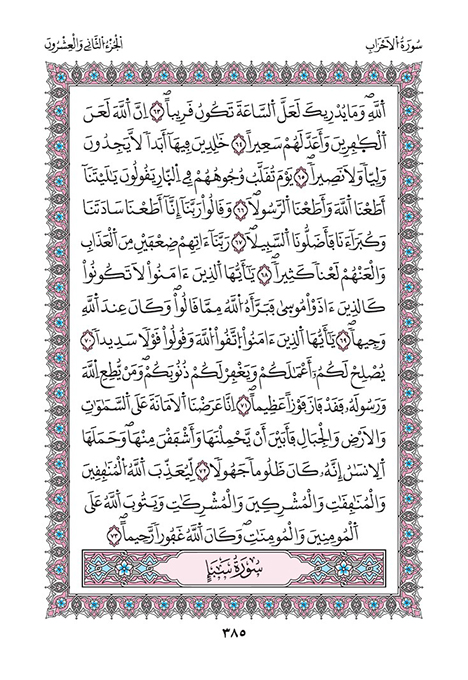 سُورَةُ الَاحْزَابِ
الْجُزْءُ الثَّانِي وَالْعِشْرُونَ
اَللَّهِ وَمَا يُدْرِيكَ لَعَلَّ اَلسَّاعَةَ تَكُونُ قَرِيباً ٦٣ اِنَّ اَللَّهَ لَعَنَ
اَلْكٰفِرِينَ وَأَعَدَّ لَهُمْ سَعِيراً ٦٤ خَٰلِدِينَ فِيهَا أَبَداً لَّا يَجِدُونَ
وَلِيّاً وَلَا نَصِيراً ٦٥ يَوْمَ تُقَلَّبُ وُجُوهُهُمْ فِي اِلنَّارِ يَقُولُونَ يَٰلَيْتَنَآ
أَطَعْنَا اَللَّهَ وَأَطَعْنَا اَلرَّسُولَا ٦٦ وَقَالُواْ رَبَّنَآ إِنَّآ أَطَعْنَا سَادَتَنَا
وَكُبَرَآءَنَا فَأَضَلُّونَا اَلسَّبِيلَا ٦٧ رَبَّنَآ ءَاتِهِمْ ضِعْفَيْنِ مِنَ اَلْعَذَابِ
وَالْعَنْهُمْ لَعْناً كَثِيراً ٦٨ يَٰٓأَيُّهَا اَلذِينَ ءَامَنُواْ لَا تَكُونُواْ
كَالذِينَ ءَاذَوْاْ مُوس۪يٰ فَبَرَّأَهُ اُللَّهُ مِمَّا قَالُواْ وَكَانَ عِندَ اَللَّهِ
وَجِيهاً ٦٩ يَٰٓأَيُّهَا اَلذِينَ ءَامَنُواْ اُتَّقُواْ اُللَّهَ وَقُولُواْ قَوْلاً سَدِيداً ٧٠
يُصْلِحْ لَكُمُۥٓ أَعْمَٰلَكُمْ وَيَغْفِرْ لَكُمْ ذُنُوبَكُمْ وَمَنْ يُّطِعِ اِللَّهَ
وَرَسُولَهُۥ فَقَدْ فَازَ فَوْزاً عَظِيماً ٧١ اِنَّا عَرَضْنَا اَلَامَانَةَ عَلَى اَلسَّمَٰوَٰتِ
وَالَارْضِ وَالْجِبَالِ فَأَبَيْنَ أَنْ يَّحْمِلْنَهَا وَأَشْفَقْنَ مِنْهَا وَحَمَلَهَا
اَلِانسَٰنُ إِنَّهُۥ كَانَ ظَلُوماً جَهُولاً ٧٢ لِّيُعَذِّبَ اَللَّهُ اُلْمُنَٰفِقِينَ
وَالْمُنَٰفِقَٰتِ وَالْمُشْرِكِينَ وَالْمُشْرِكَٰتِ وَيَتُوبَ اَللَّهُ عَلَى
اَلْمُومِنِينَ وَالْمُومِنَٰتِ وَكَانَ اَللَّهُ غَفُوراً رَّحِيماً ٧٣
سُورَةُ سَبَإٍ
٣٨٥